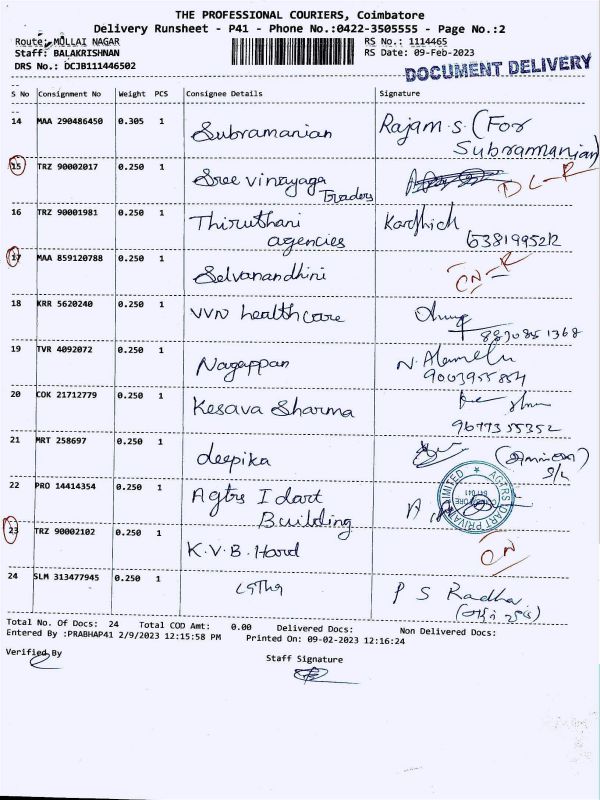 THE PROFESSIONAL COURIERS, Coimbatore
Delivery Runsheet - P41 - Phone No.:0422-3505555 - Page No.:2
Route: MULLAI NAGAR RS No.: 1114465
Staff: BALAKRISHNAN RS Date: 09-Feb-2023
DRS No.: DCJB111446502
DOCUMENT DELIVERY
S No Consignment No Weight PCS Consignee Details Signature
14 MAA 290486450 0.305 1 Subramanian Rajam.s (For
Subramanian)
15 TRZ 90002017 0.250 1 Sree vinayaga DL-R
Traders
16 TRZ 90001981 0.250 1 Thiruthani Karthick
agencies 6381995212
17 MAA 859120788 0.250 1 Selvanandhini CN-R
18 KRR 5620240 0.250 1 VVN healthcare
8870851368
19 TVR 4092072 0.250 1 Nagappan N. Alamelu
9003955854
20 COK 21712779 0.250 1 Kesava Sharma
9677355352
21 MRT 258697 0.250 1 deepika
22 PRO 14414354 0.250 1 Agtrs I dart
Building
23 TRZ 90002102 0.250 1 K.V.B. Hard CN
24 SLM 313477945 0.250 1 P S Radha
Total No. Of Docs: 24 Total COD Amt: 0.00 Delivered Docs: Non Delivered Docs:
Entered By :PRABHAP41 2/9/2023 12:15:58 PM Printed On: 09-02-2023 12:16:24
Verified By
Staff Signature